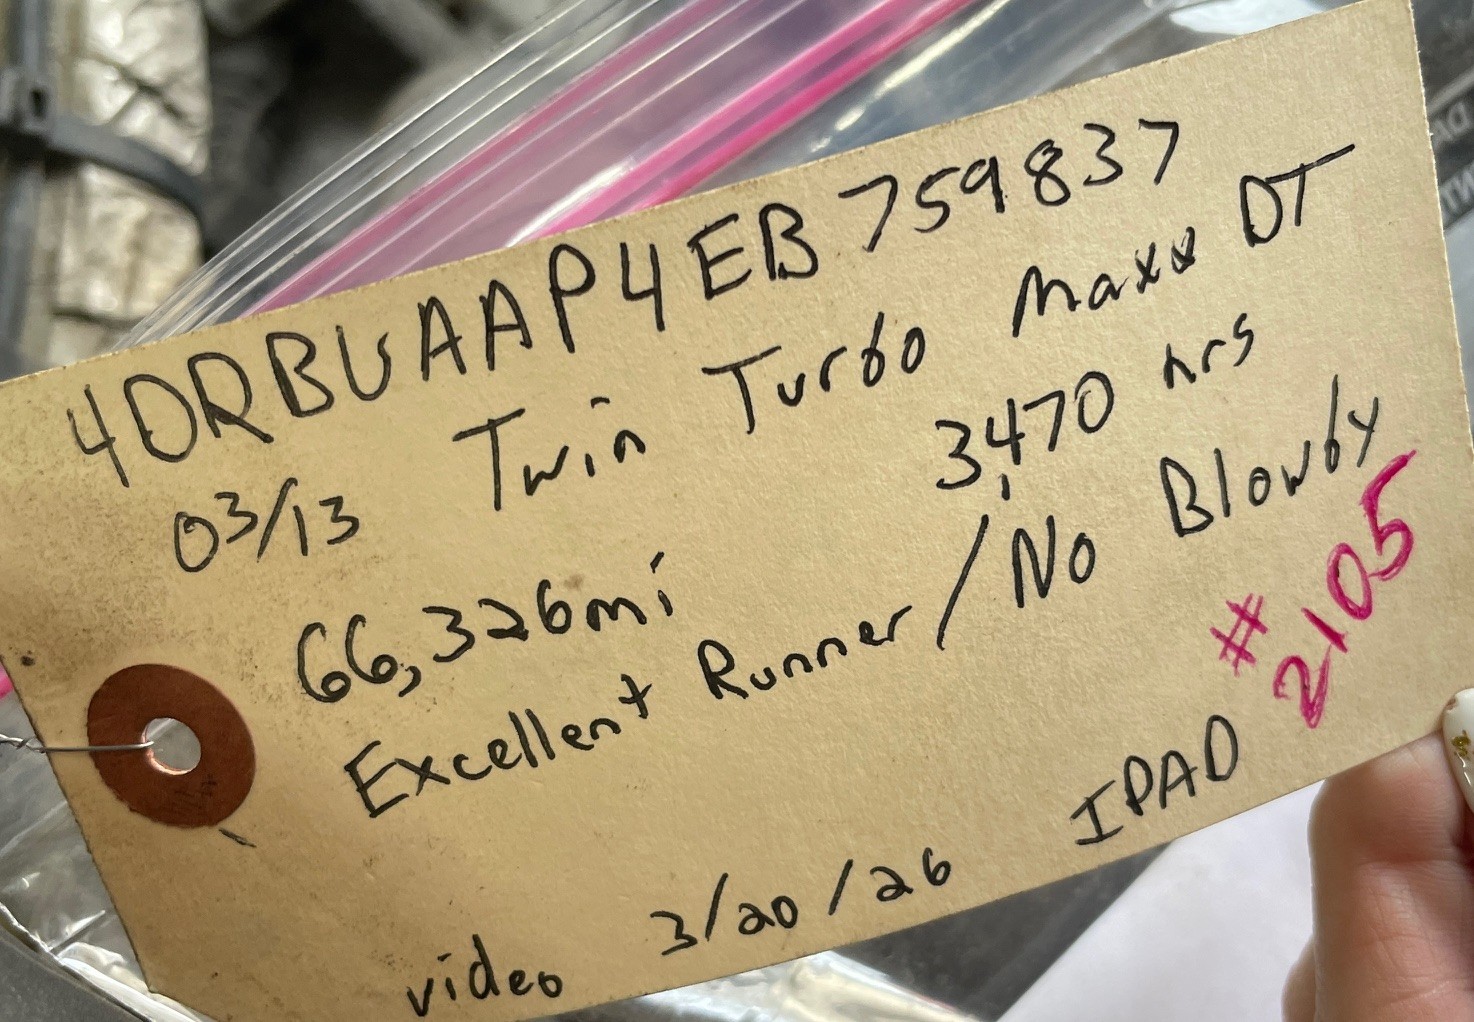 4DRBUAAP4EB759837
03/13 Twin Turbo Maxx DT
66,326mi 3,470 hrs
Excellent Runner / No Blowby
# 2105
video 3/20/26 IPAD